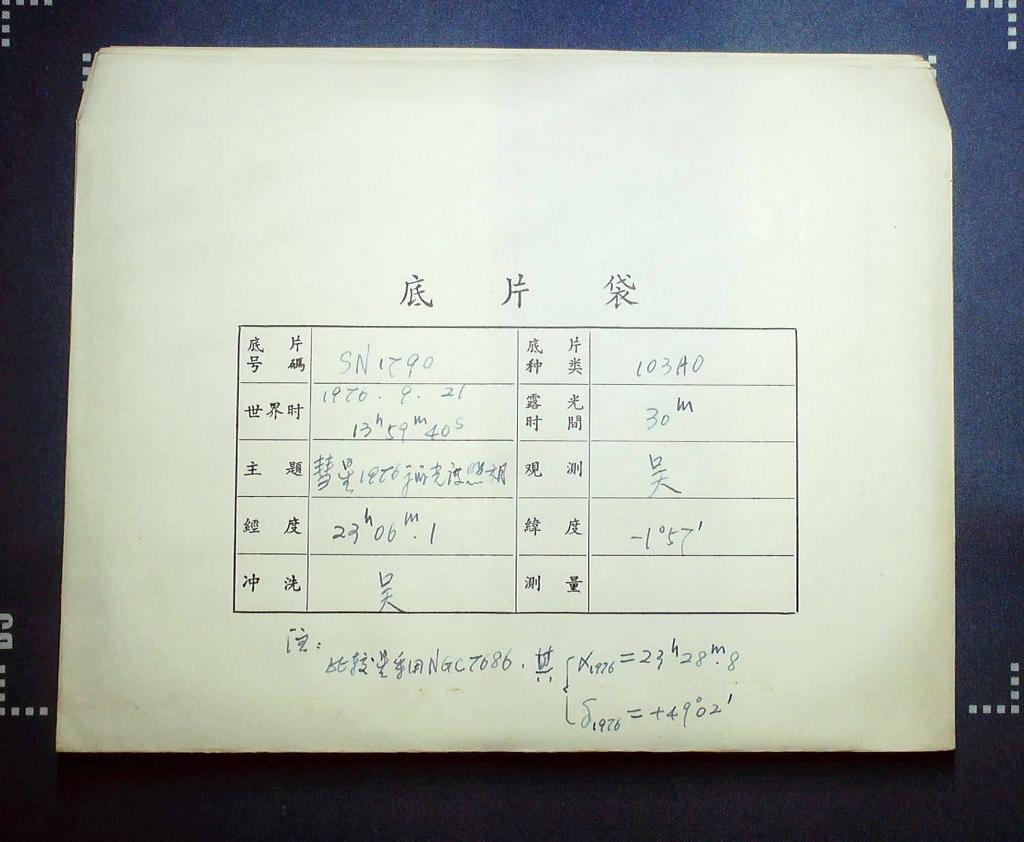 底片袋
底片号碼 SN1790 底片种类 103AO
世界时 1976.9.21 13ʰ59ᵐ40ˢ 露光时間 30ᵐ
主題 彗星1976 光度照相 观測 吴
經度 23ʰ06ᵐ.1 緯度 -1°57′
冲洗 吴 測量
注:
比較星采用NGC7686. 其 α₁₉₇₆=23ʰ28ᵐ.8
δ₁₉₇₆=+49°02′